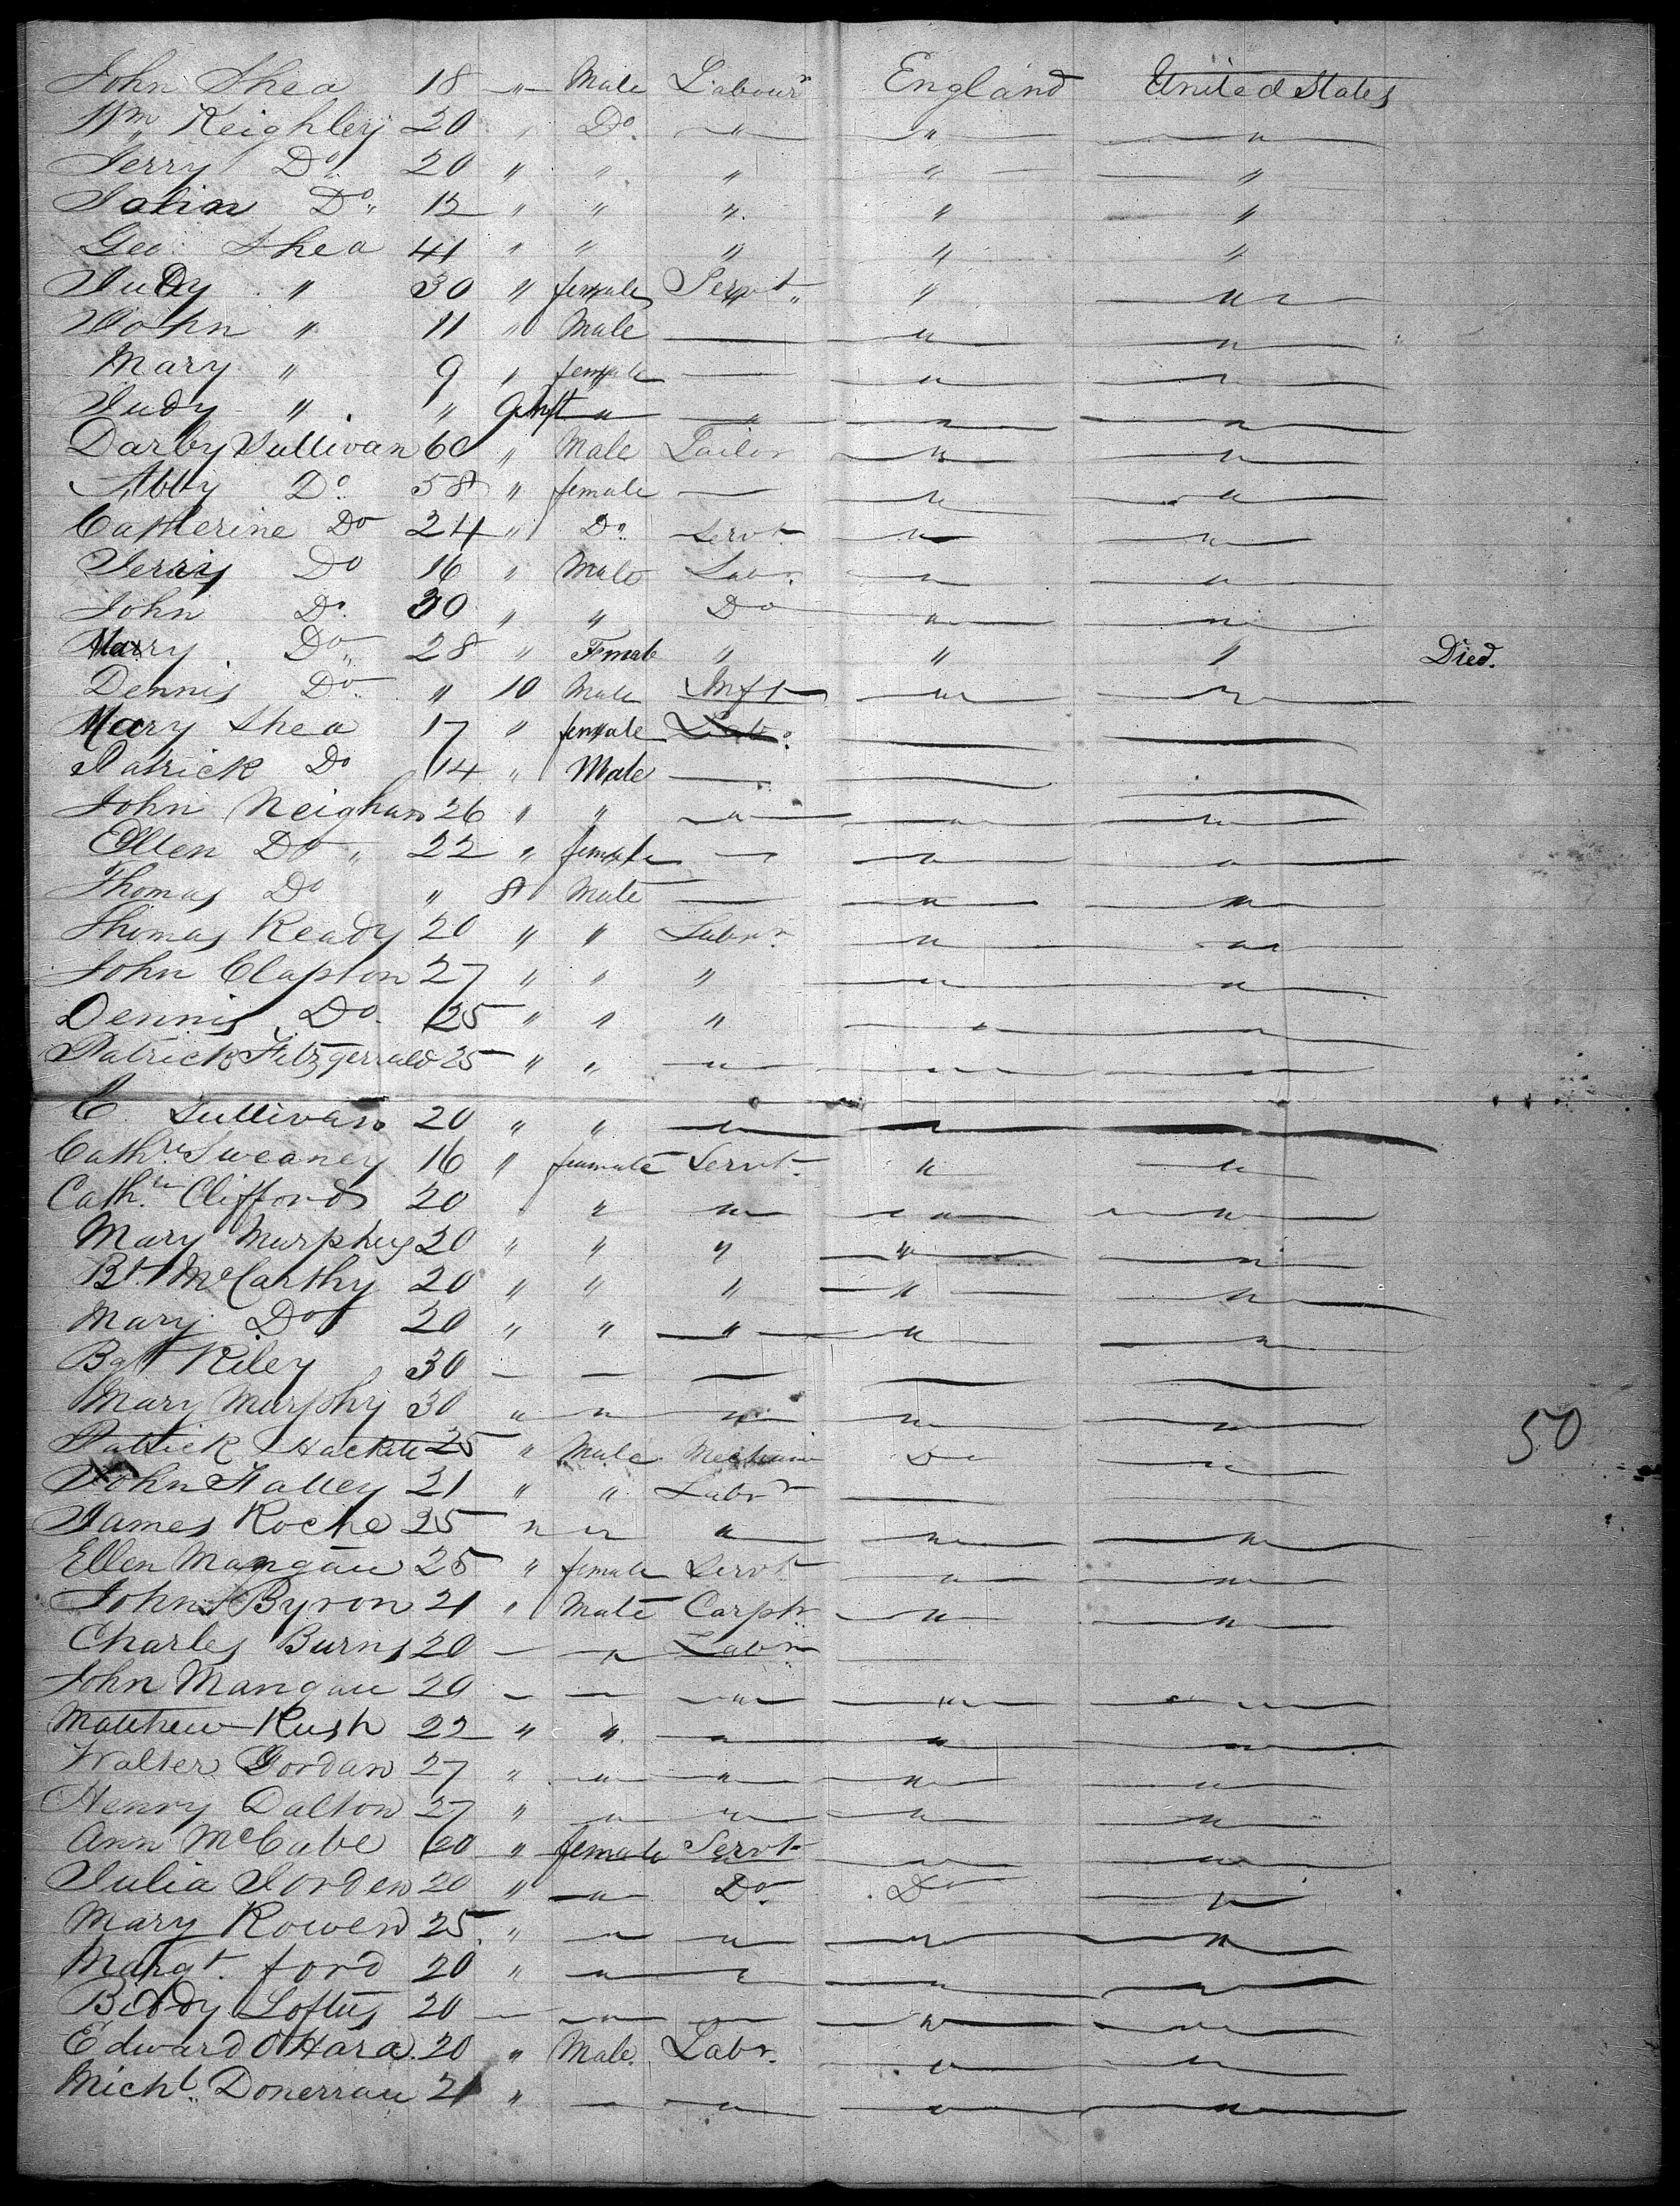 John Shea 18 " Male Labourr England United States
Wm Keighley 20 " Do " " "
Jerry Do 20 " " " " "
Do 12 " " " " "
Geo Shea 41 " " " " "
Judy " 30 " female Servt " "
John " 11 " Male — " "
Mary " 9 " female — " "
Judy " " 9 Inft " " " "
Darby Sullivan 60 " Male Tailor " "
Abby Do 58 " female — " "
Catherine Do 24 " Do Servt " "
Jerry Do 16 " Male Labr " "
John Do 30 " " Do " "
Mary Do 28 " Female " " " Died.
Dennis Do " 10 Male Inft " "
Mary Shea 17 " female Labr — —
Patrick Do 14 " Male — — —
John Neighan 26 " " " " "
Ellen Do 22 " female — " "
Thomas Do " 8 Male — " "
Thomas Ready 20 " " Labr " "
John Clapton 27 " " " " "
Dennis Do 25 " " " " "
Patrick Fitzgerrald 25 " " " " "
C Sullivan 20 " " " " "
Cathe Sweaney 16 " female Servt " "
Cathe Clifford 20 " " " " "
Mary Murphey 20 " " " " "
Bt McCarthy 20 " " " " "
Mary Do 20 " " " " "
Bgt Riley 30 — — — — —
Mary Murphy 30 " " " " "
Patrick 25 " Male Mechanic Do "
John 21 " " Labr — —
James Roche 25 " " " " "
Ellen Mangan 25 " female Servt " "
John Byron 21 " Male Carptr " "
Charles Burns 20 — " Labr —
John Mangan 20 — — " " "
Matthew Rush 22 " " " " "
Walter Jordan 27 " " " " "
Henry Dalton 27 " " " " "
Ann McCabe 20 " female Servt " "
Julia Jorden 20 " " Do Do "
Mary Rowen 25 " " " " "
Margt ford 20 " " " " "
Biddy Loftus 20 — " " " "
Edward O Hara 20 " Male. Labr. " "
Michl Donerrau 21 " " " " "
50